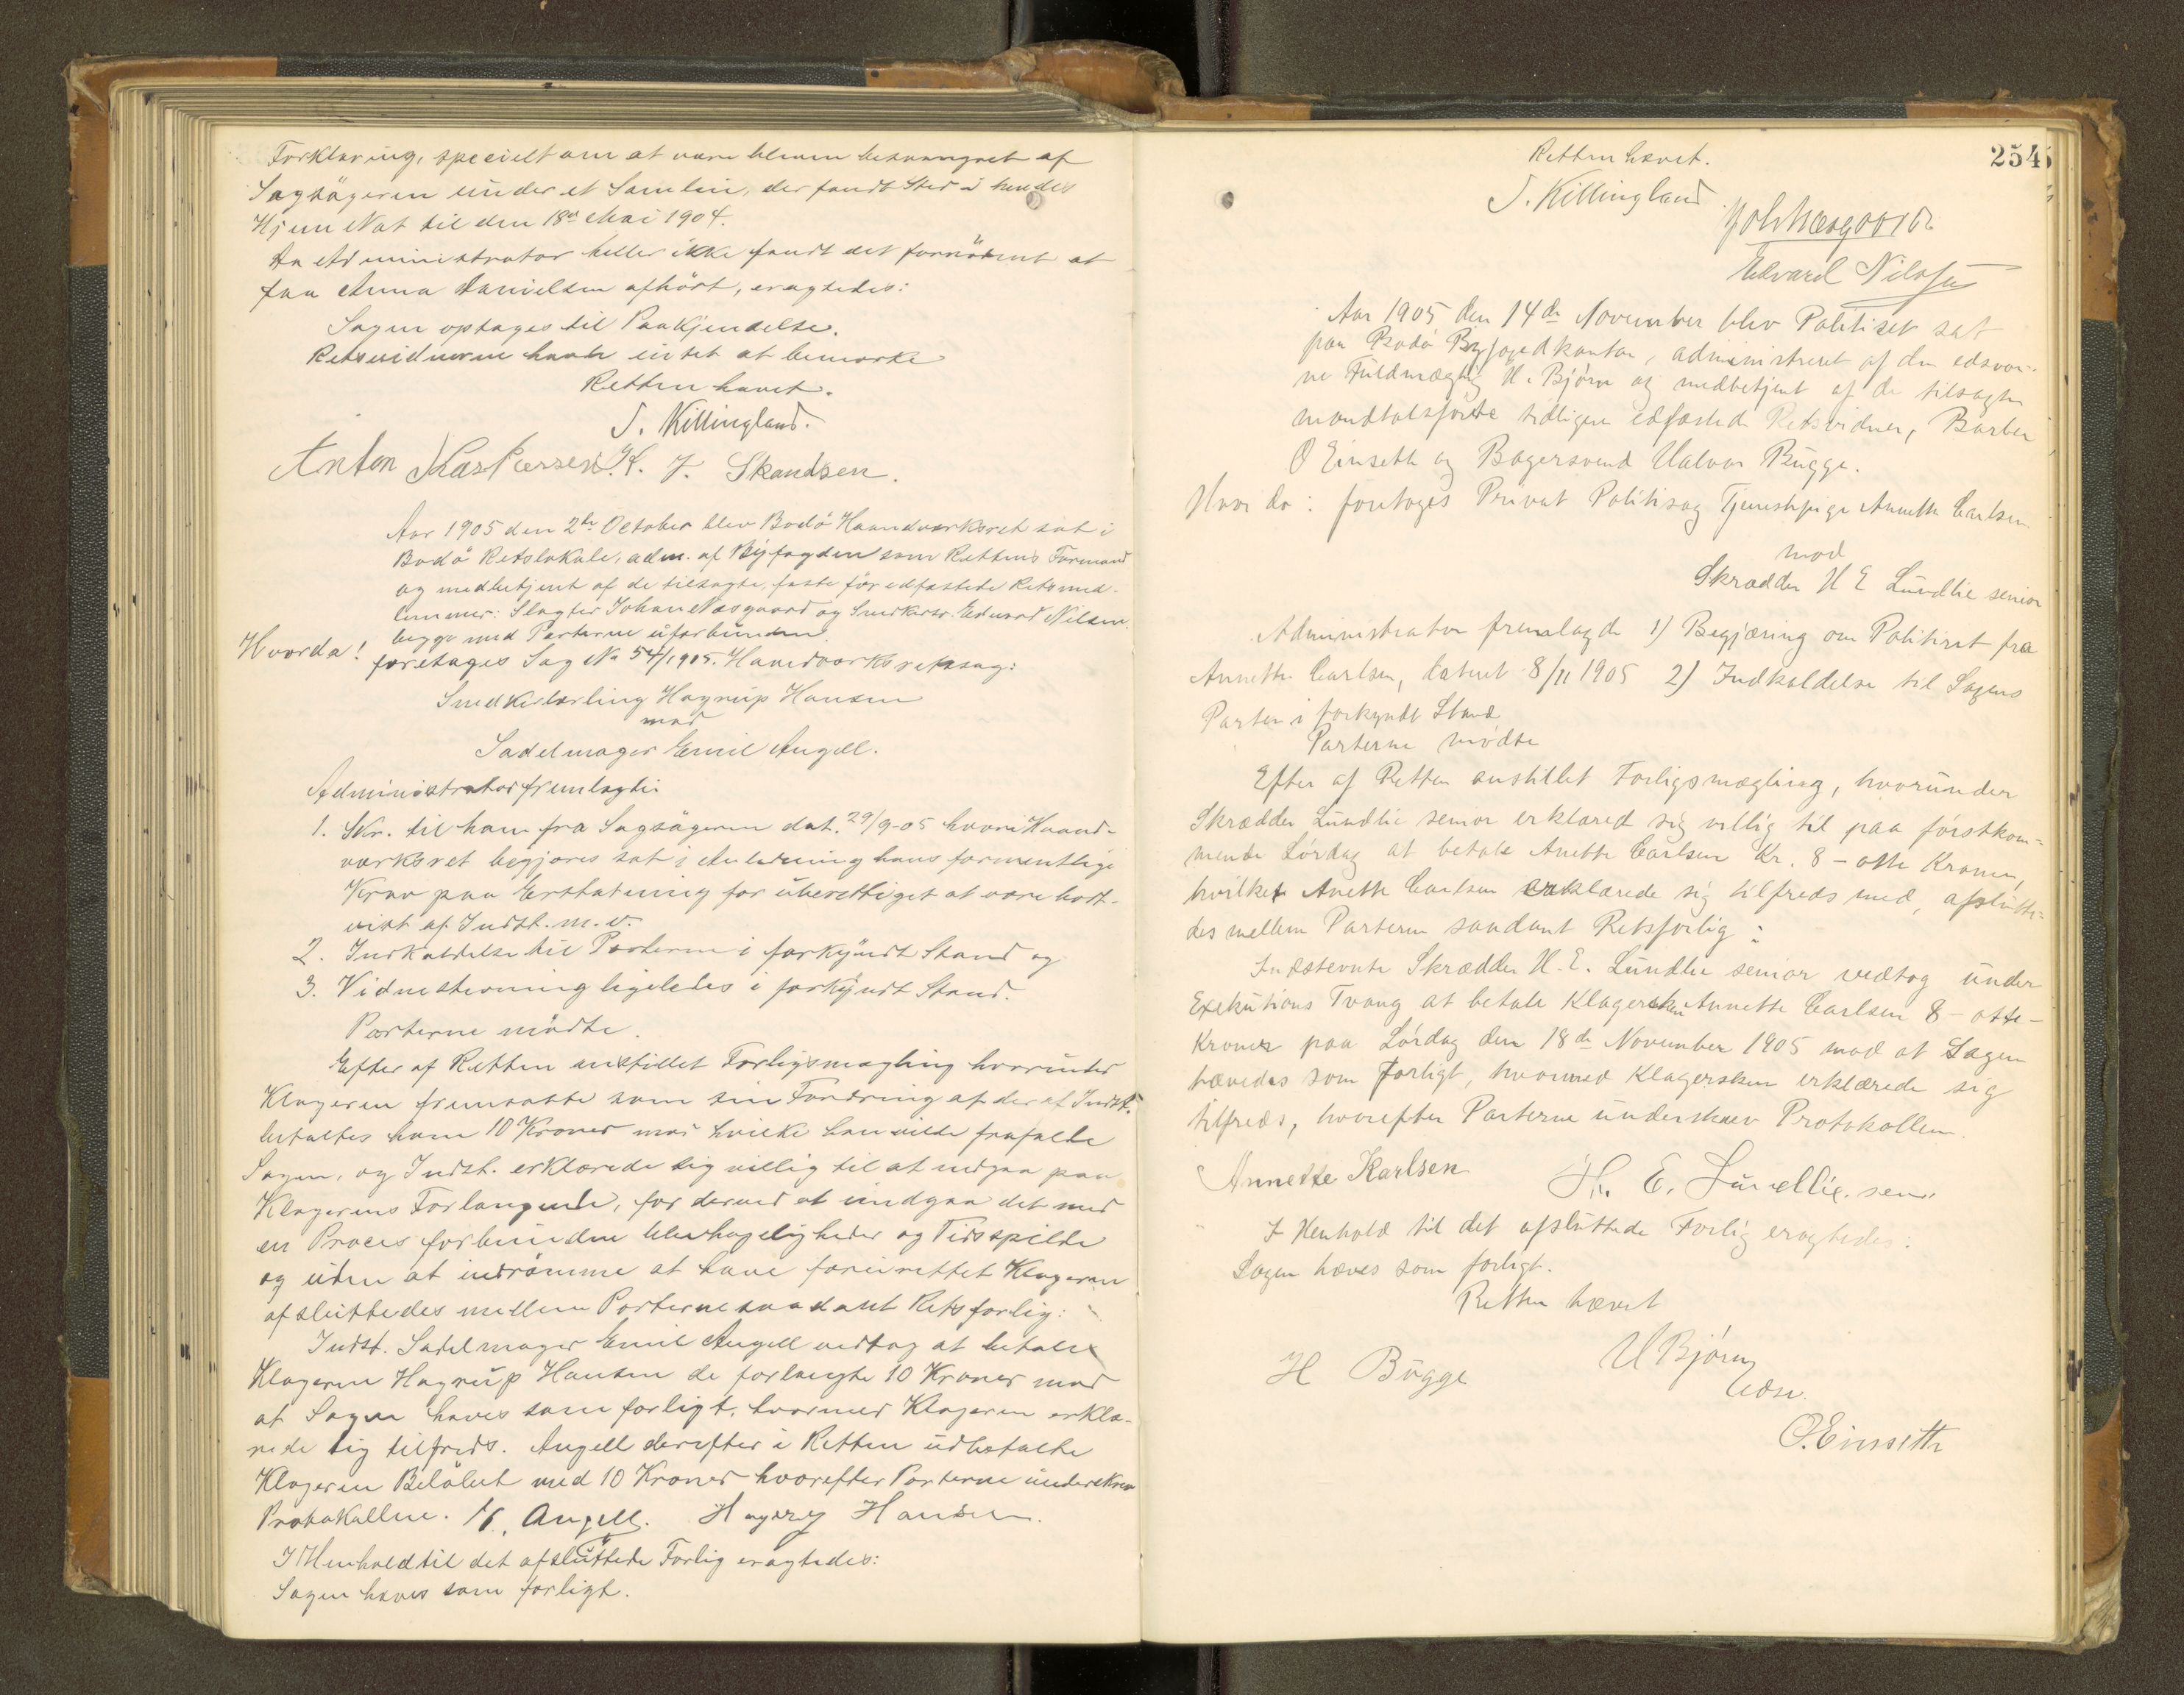 Forklaring, specielt om at være bleven besvangret af
Sagsøgeren under et Samleie, der fandt Sted i hendes
Hjem Nat til den 18de Mai 1904.
Da Administrator heller ikke fandt det fornødent at
faa Anna Danielsen afhørt, eragtedes:
Sagen optages til Paakjendelse.
Retsvidnerne havde intet at bemærke
Retten hævet.
J. Killingland.
Anton Kaspersen. K. J. Skandsen.
Aar 1905 den 2de October blev Bodø Haandværksret sat i
Bodø Retslokale, adm. af Byfogden som Rettens Formand
og medbetjent af de tilsagte, faste før edfæstede Retsmed-
lemmer: Slagter Johan Næsgaard og Snedkersv. Edvard Nilsen,
begge med Parterne uforbunden.
Hvorda!
foretages Sag No 54/1905. Haandværksretssag:
Snedkerlærling Hagrup Hansen
mod
Sadelmager Emil Angell.
Administrator fremlagde:
1. Skr. til ham fra Sagsøgeren dat. 29/9-05 hvori Haand-
værksret begjæres sat i Anledning hans formentlige
Krav paa Erstatning for uberettiget at være bort-
vist af Indst. m. v.
2. Indkaldelse til Parterne i forkyndt Stand og
3. Vidnestevning ligeledes i forkyndt Stand.
Parterne mødte.
Efter af Retten anstillet Forligsmægling hvorunder
Klageren fremsatte som sin Fordring at der af Indst.
betaltes ham 10 Kroner mod hvilke han vilde frafalde
Sagen, og Indst. erklærede sig villig til at indgaa paa
Klagerens Forlangende, for derved at undgaa det med
en Proces forbundne Ubehageligheder og Tidsspilde
og uden at indrømme at have forurettet Klageren
afsluttedes mellem Parterne saadant Retsforlig:
Indst. Sadelmager Emil Angell vedtog at betale
Klageren Hagrup Hansen de forlangte 10 Kroner mod
at Sagen hæves som forligt, hvormed Klageren erklæ-
rede sig tilfreds. Angell derefter i Retten udbetalte
Klageren Beløbet med 10 Kroner hvorefter Parterne underskrev
Protokollen. Angell. Hansen.
I Henhold til det afsluttede Forlig eragtedes:
Sagen hæves som forligt.
254
Retten hævet.
J. Killingland
Joh Næsgaard
Edvard Nilssen
Aar 1905 den 14de November blev Politiret sat
paa Bodø Byfogedkontor, administreret af den edsvor-
ne Fuldmægtig U. Bjørn og medbetjent af de tilsagte
mandtalsførte tidligere edfæstede Retsvidner, Barber
O Einseth og Bagersvend Halvor Bugge.
Hvor da: foretages Privat Politisag Tjenestepige Annette Carlsen
mod
Skrædder H E Lundlie senior
Administrator fremlagde 1) Begjæring om Politiret fra
Annette Carlsen, dateret 8/11 1905 2) Indkaldelse til Sagens
Parter i forkyndt Stand
Parterne mødte
Efter af Retten anstillet Forligsmægling, hvorunder
Skrædder Lundlie senior erklæred sig villig til paa førstkom-
mende Lørdag at betale Anette Carlsen Kr. 8 - otte Kroner,
hvilket Anette Carlsen erklærede sig tilfreds med, afslutte-
des mellem Parterne saadant Retsforlig:
Indstevnte Skrædder H. E. Lundlie senior vedtog under
Exekutions Tvang at betale Klagersken Annette Carlsen 8 - otte -
Kroner paa Lørdag den 18de November 1905 mod at Sagen
hævedes som forligt, hvormed Klagersken erklærede sig
tilfreds, hvorefter Parterne underskrev Protokollen.
Annette Karlsen H. E. Lundlie. sen.
I Henhold til det afsluttede Forlig eragtedes:
Sagen hæves som forligt.
Retten hævet
H Bugge
U Bjørn
edsv.
O. Einseth